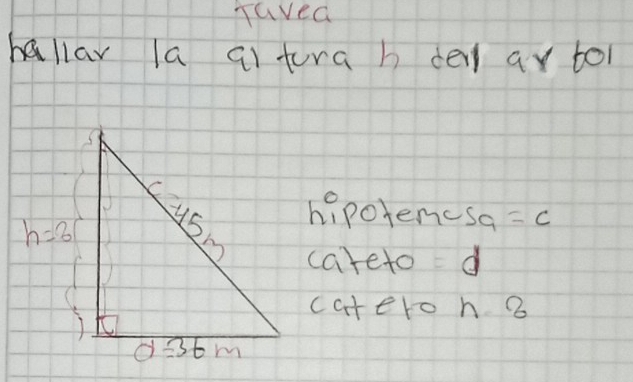 Tavea
hallar la altura h del arbol
c=45m
h=?
hipotemusa = c
cateto = d
cateto h ?
d=36 m